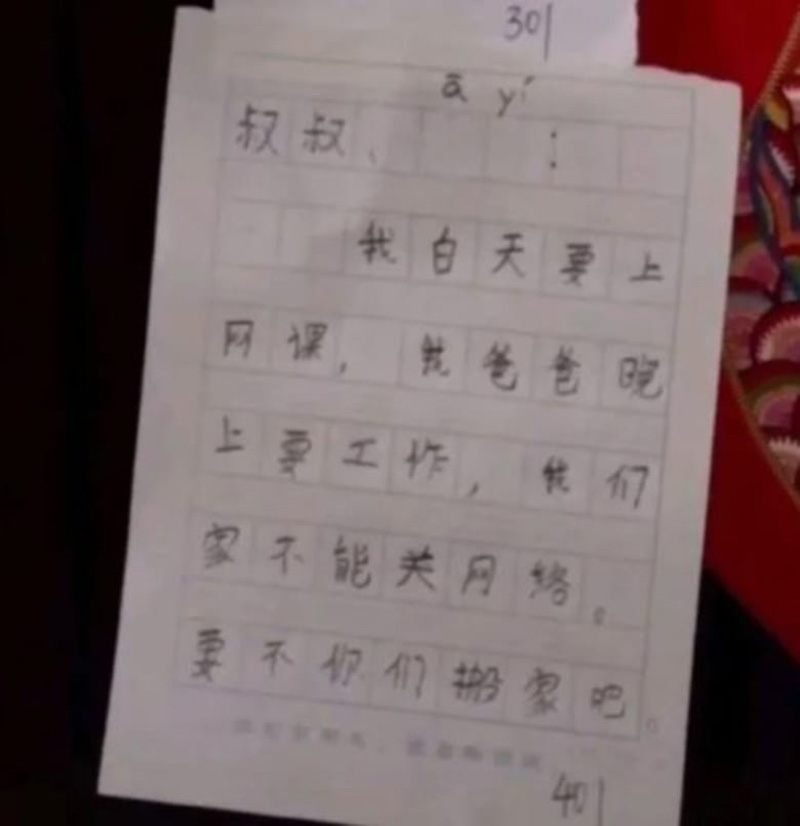 301
ā yí
叔叔、 :
我白天要上
网课, 我爸爸晚
上要工作, 我们
家不能关网络。
要不你们搬家吧。
401